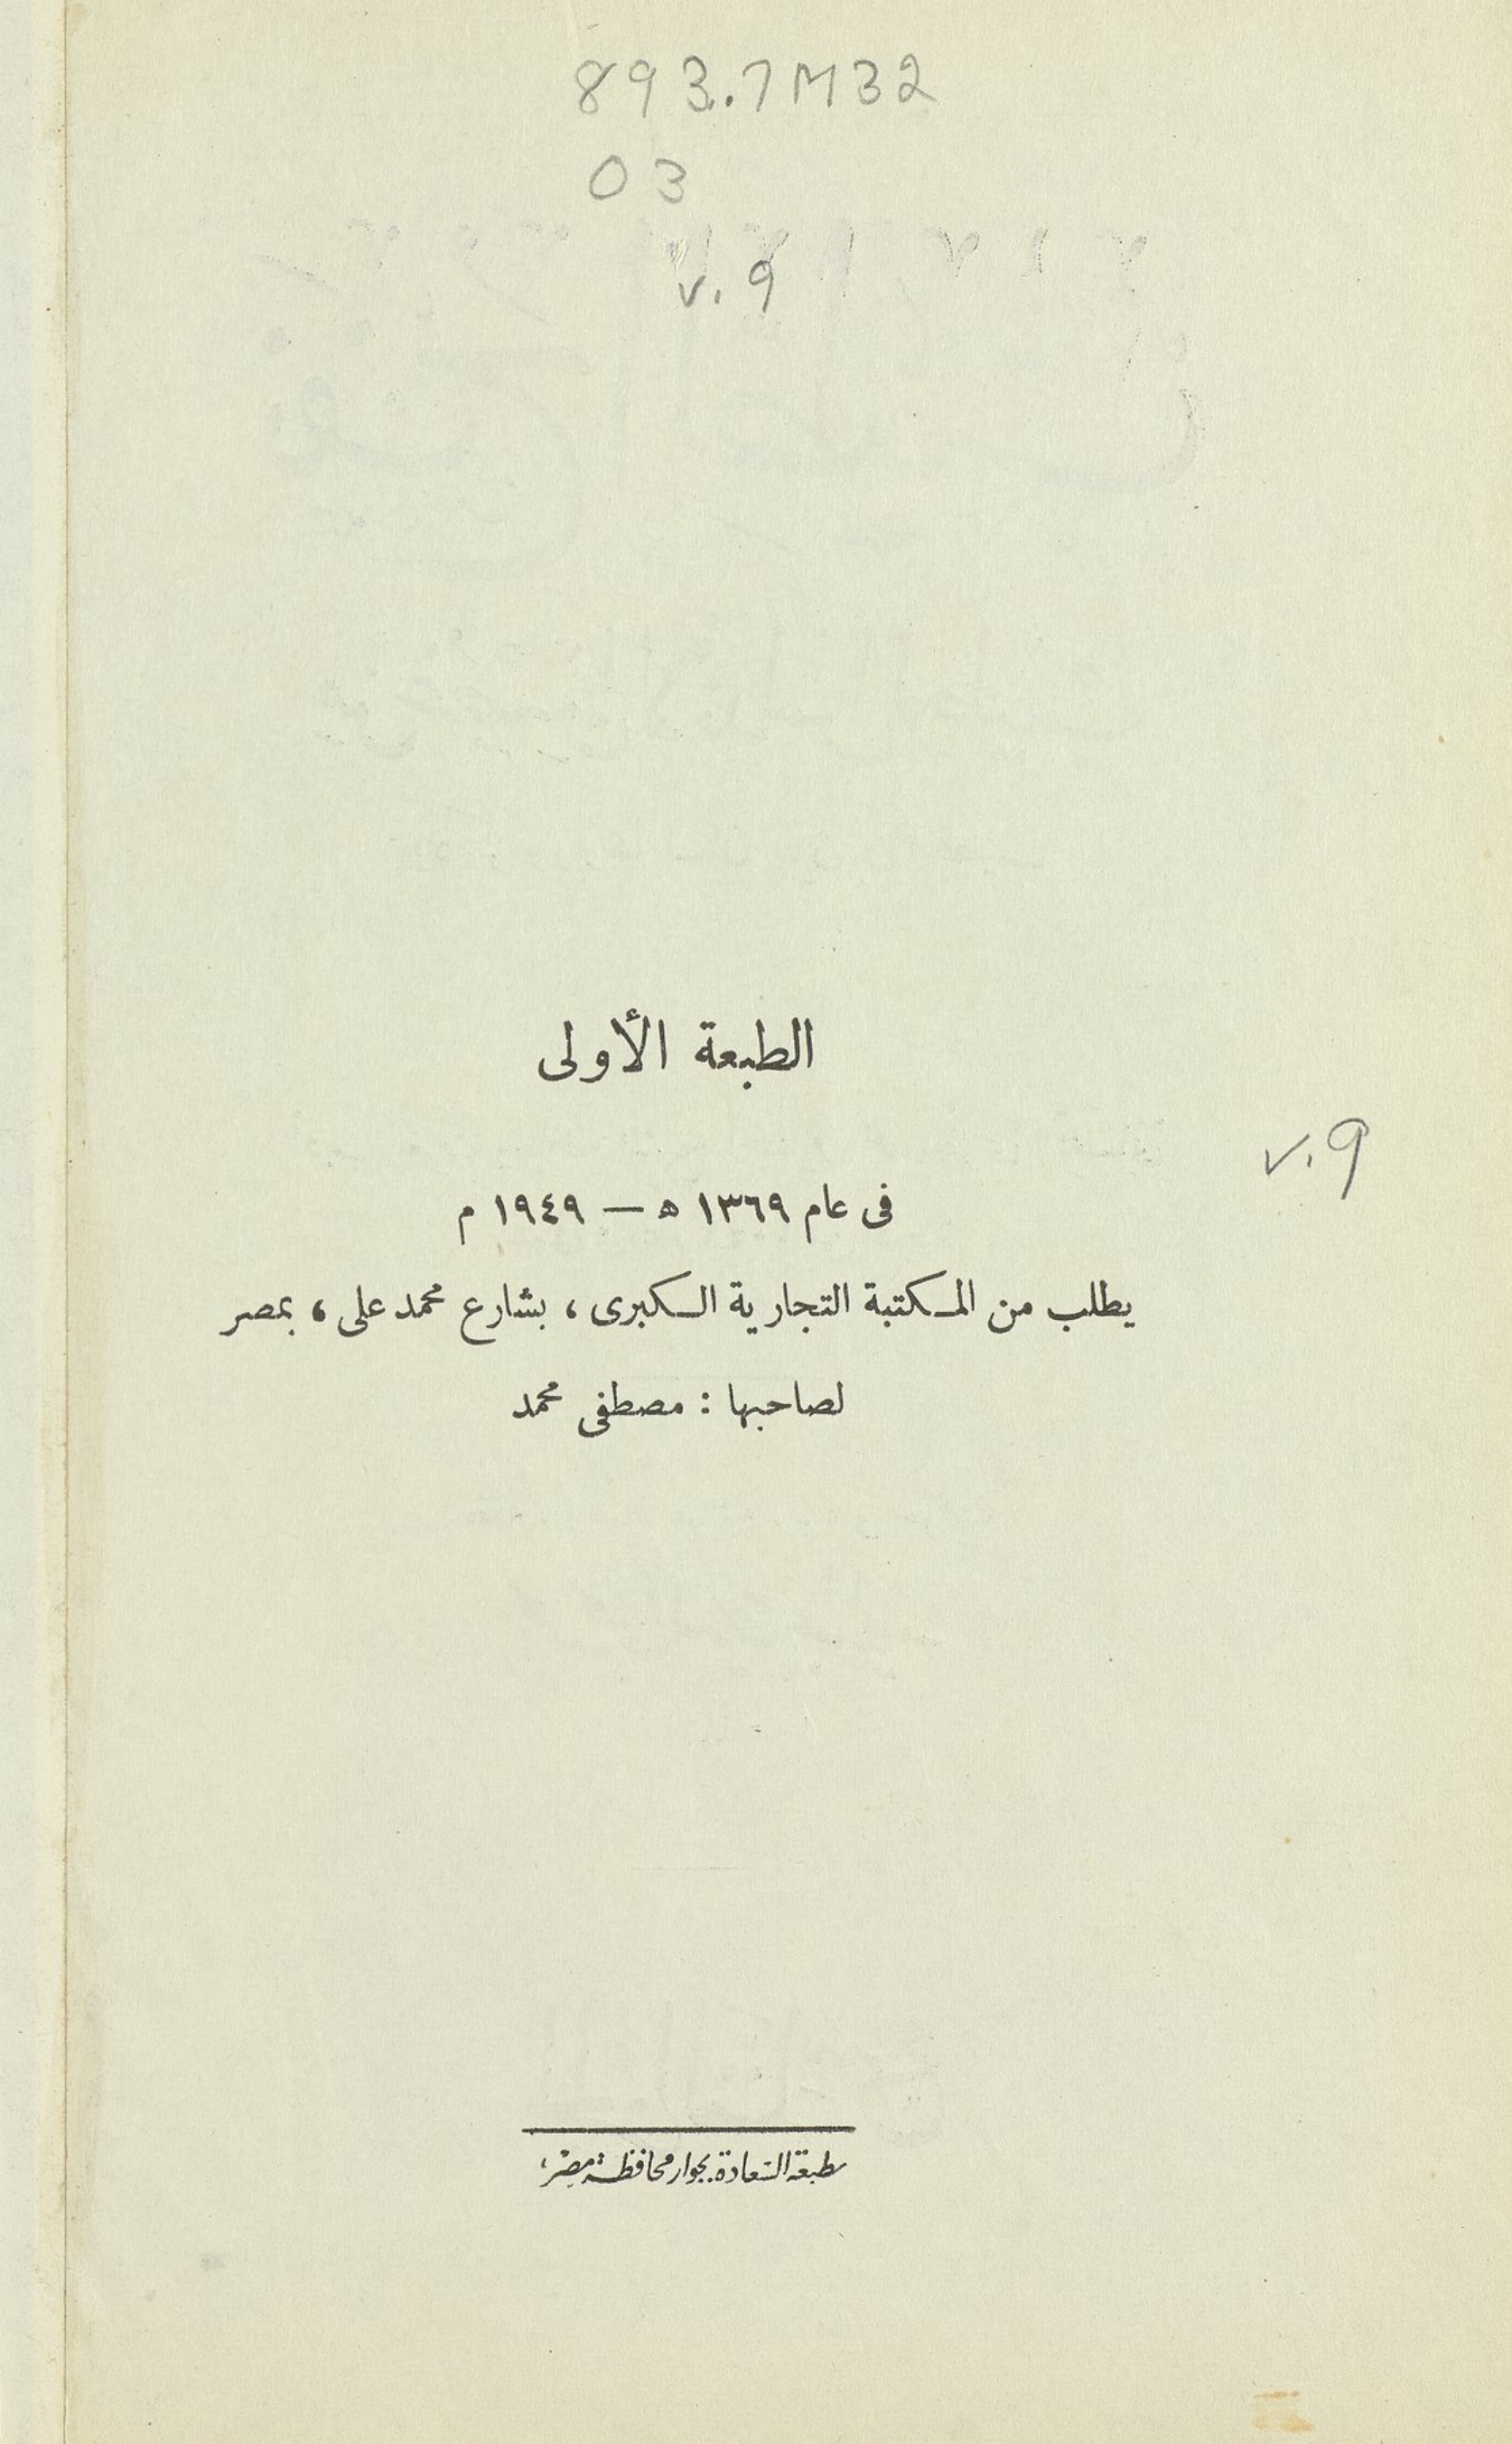 893.7M32
03
v.9
الطبعة الأولى
v.9
فى عام ١٣٦٩ ه — ١٩٤٩ م
يطلب من المكتبة التجارية الكبرى ، بشارع محمد على ، بمصر
لصاحبها : مصطفى محمد
مطبعة السعادة بجوار محافظة مصر